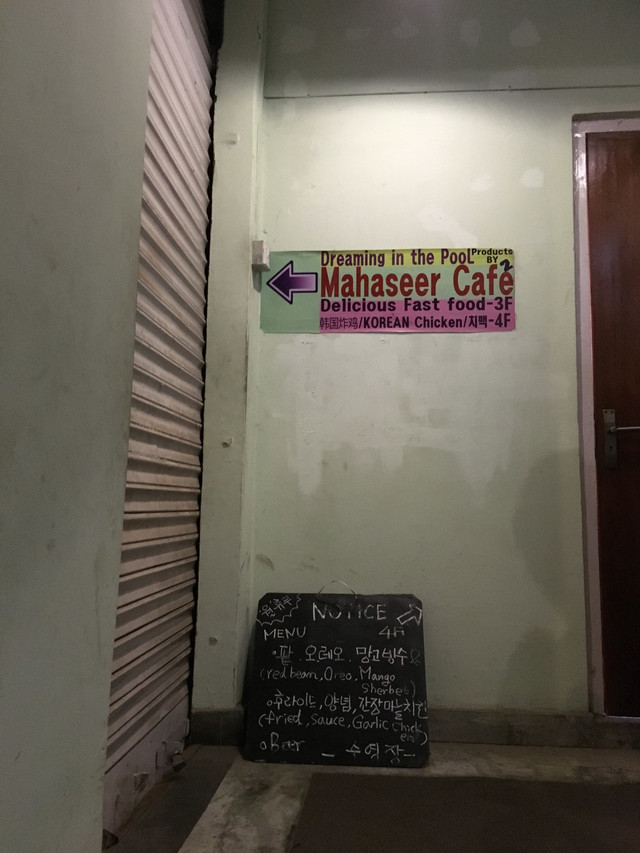 Dreaming in the PooL Products
BY 2
Mahaseer Café
Delicious Fast food-3F
韩国炸鸡/KOREAN Chicken/치맥-4F
NOTICE
MENU 4F
팥. 오레오. 망고빙수
(redbean, Oreo, Mango
Sherbet)
후라이드, 양념, 간장마늘치킨
(fried, Sauce, Garlic Chick
en)
Beer – 수영장 –